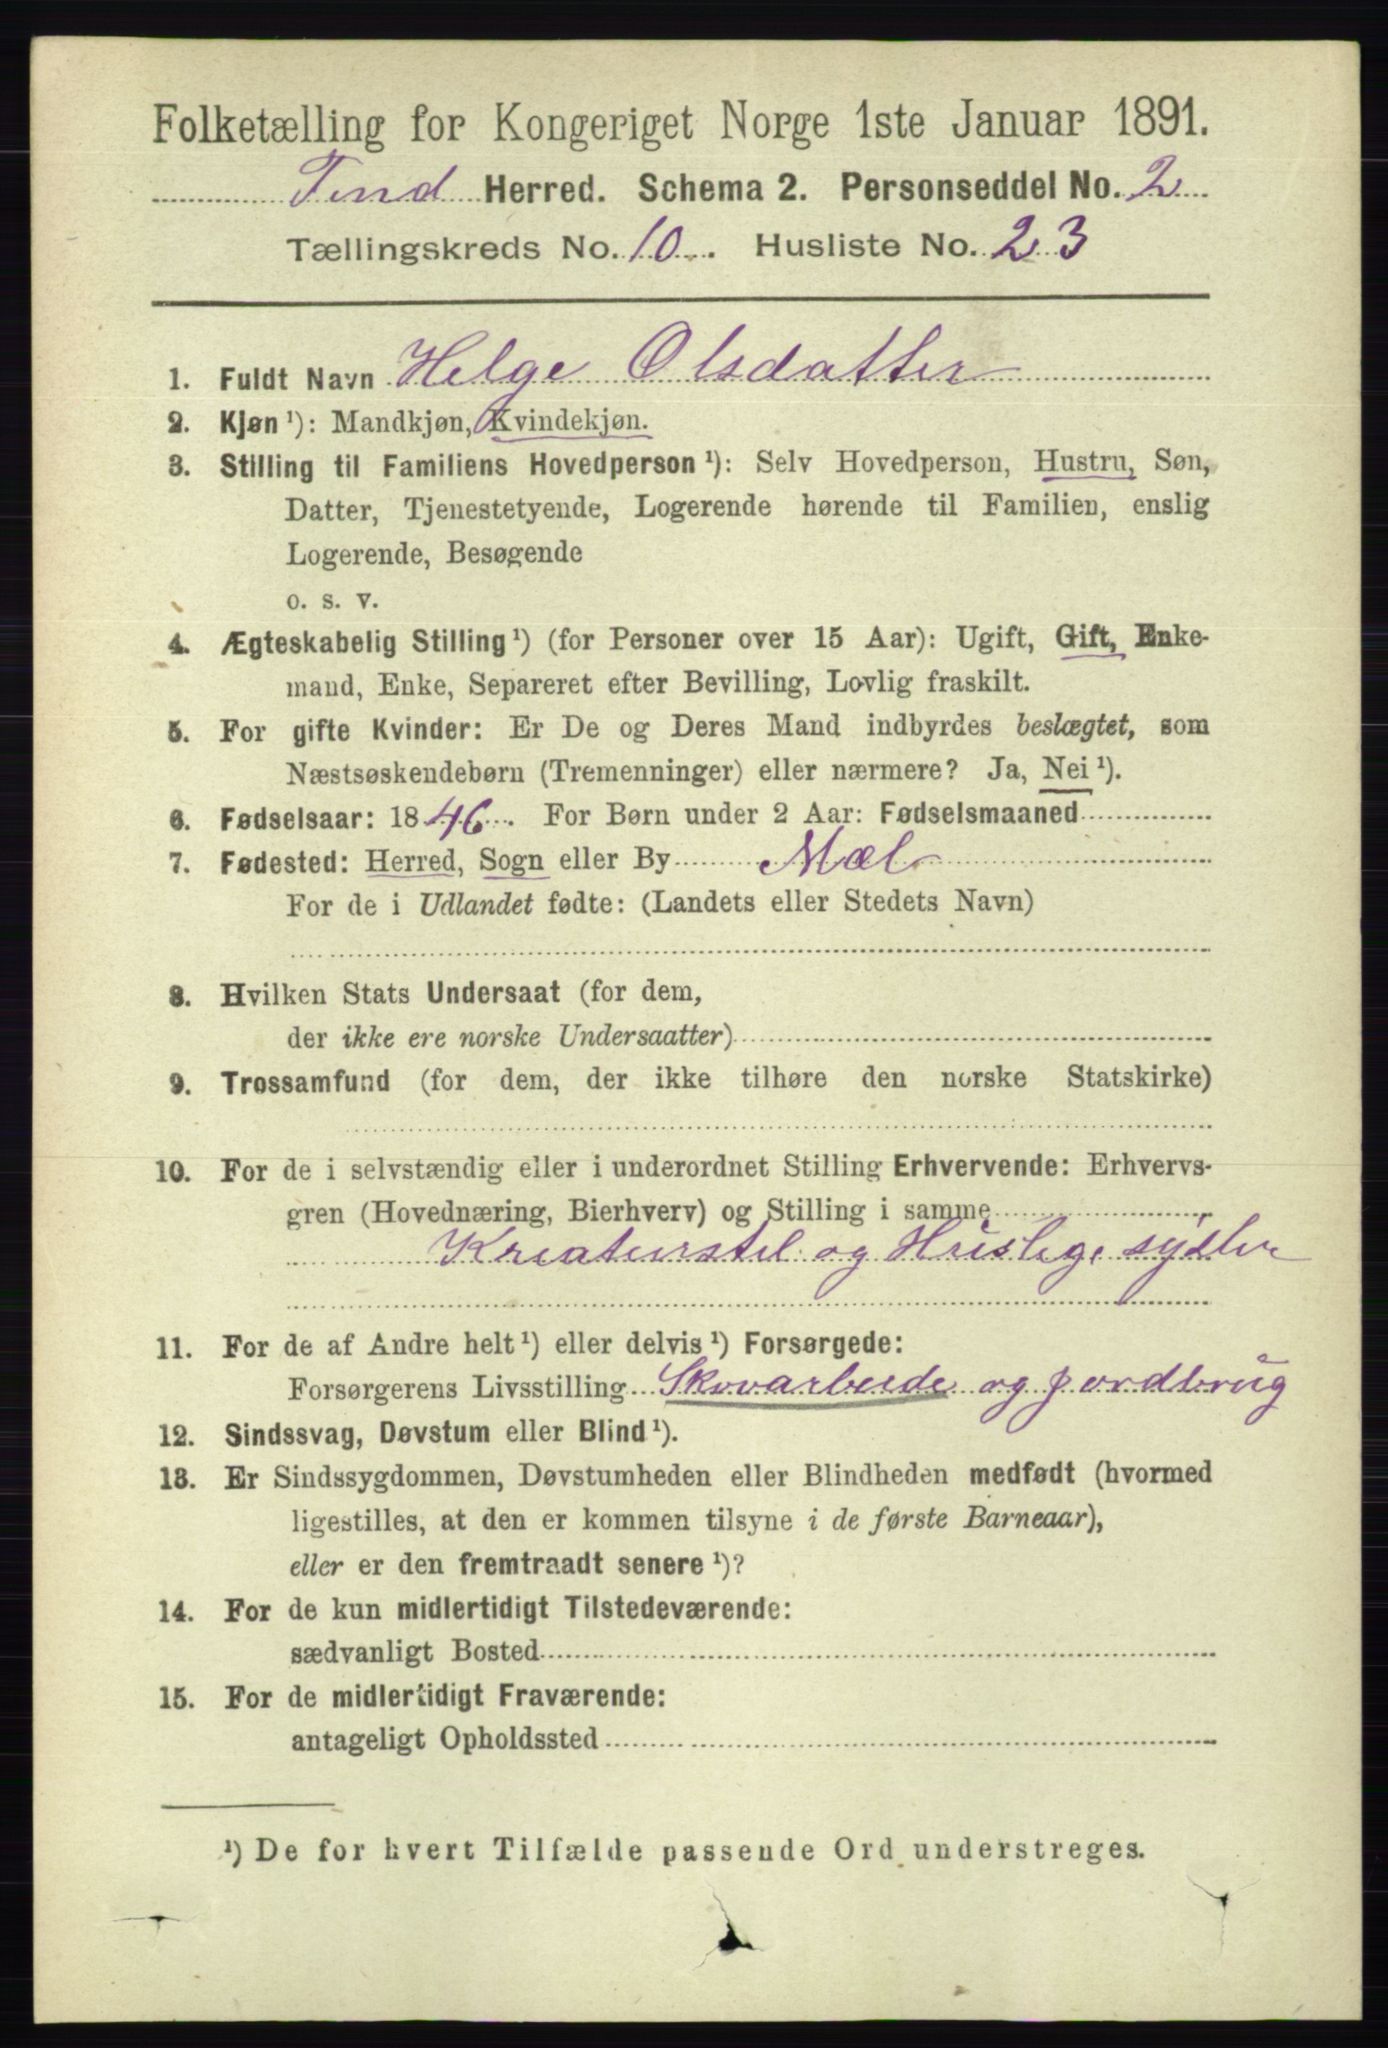 Folketælling for Kongeriget Norge 1ste Januar 1891.
Tind Herred. Schema 2. Personseddel No. 2
Tællingskreds No. 10. Husliste No. 23
1. Fuldt Navn Helge Olsdatter
2. Kjøn ¹): Mandkjøn, Kvindekjøn.
3. Stilling til Familiens Hovedperson ¹): Selv Hovedperson, Hustru, Søn,
Datter, Tjenestetyende, Logerende hørende til Familien, enslig
Logerende, Besøgende
o. s. v.
4. Ægteskabelig Stilling ¹) (for Personer over 15 Aar): Ugift, Gift, Enke-
mand, Enke, Separeret efter Bevilling, Lovlig fraskilt.
5. For gifte Kvinder: Er De og Deres Mand indbyrdes beslægtet, som
Næstsøskendebørn (Tremenninger) eller nærmere? Ja, Nei ¹).
6. Fødselsaar: 1846. For Børn under 2 Aar: Fødselsmaaned
7. Fødested: Herred, Sogn eller By Mæl
For de i Udlandet fødte: (Landets eller Stedets Navn)
8. Hvilken Stats Undersaat (for dem,
der ikke ere norske Undersaatter)
9. Trossamfund (for dem, der ikke tilhøre den norske Statskirke)
10. For de i selvstændig eller i underordnet Stilling Erhvervende: Erhvervs-
gren (Hovednæring, Bierhverv) og Stilling i samme
Kreaturstel og Huslige sysler
11. For de af Andre helt ¹) eller delvis ¹) Forsørgede:
Forsørgerens Livsstilling Skovarbeide og jordbrug
12. Sindssvag, Døvstum eller Blind ¹).
13. Er Sindssygdommen, Døvstumheden eller Blindheden medfødt (hvormed
ligestilles, at den er kommen tilsyne i de første Barneaar),
eller er den fremtraadt senere ¹)?
14. For de kun midlertidigt Tilstedeværende:
sædvanligt Bosted
15. For de midlertidigt Fraværende:
antageligt Opholdssted
¹) De for hvert Tilfælde passende Ord understreges.